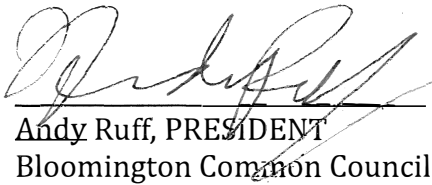 Andy Ruff
Andy Ruff, PRESIDENT
Bloomington Common Council